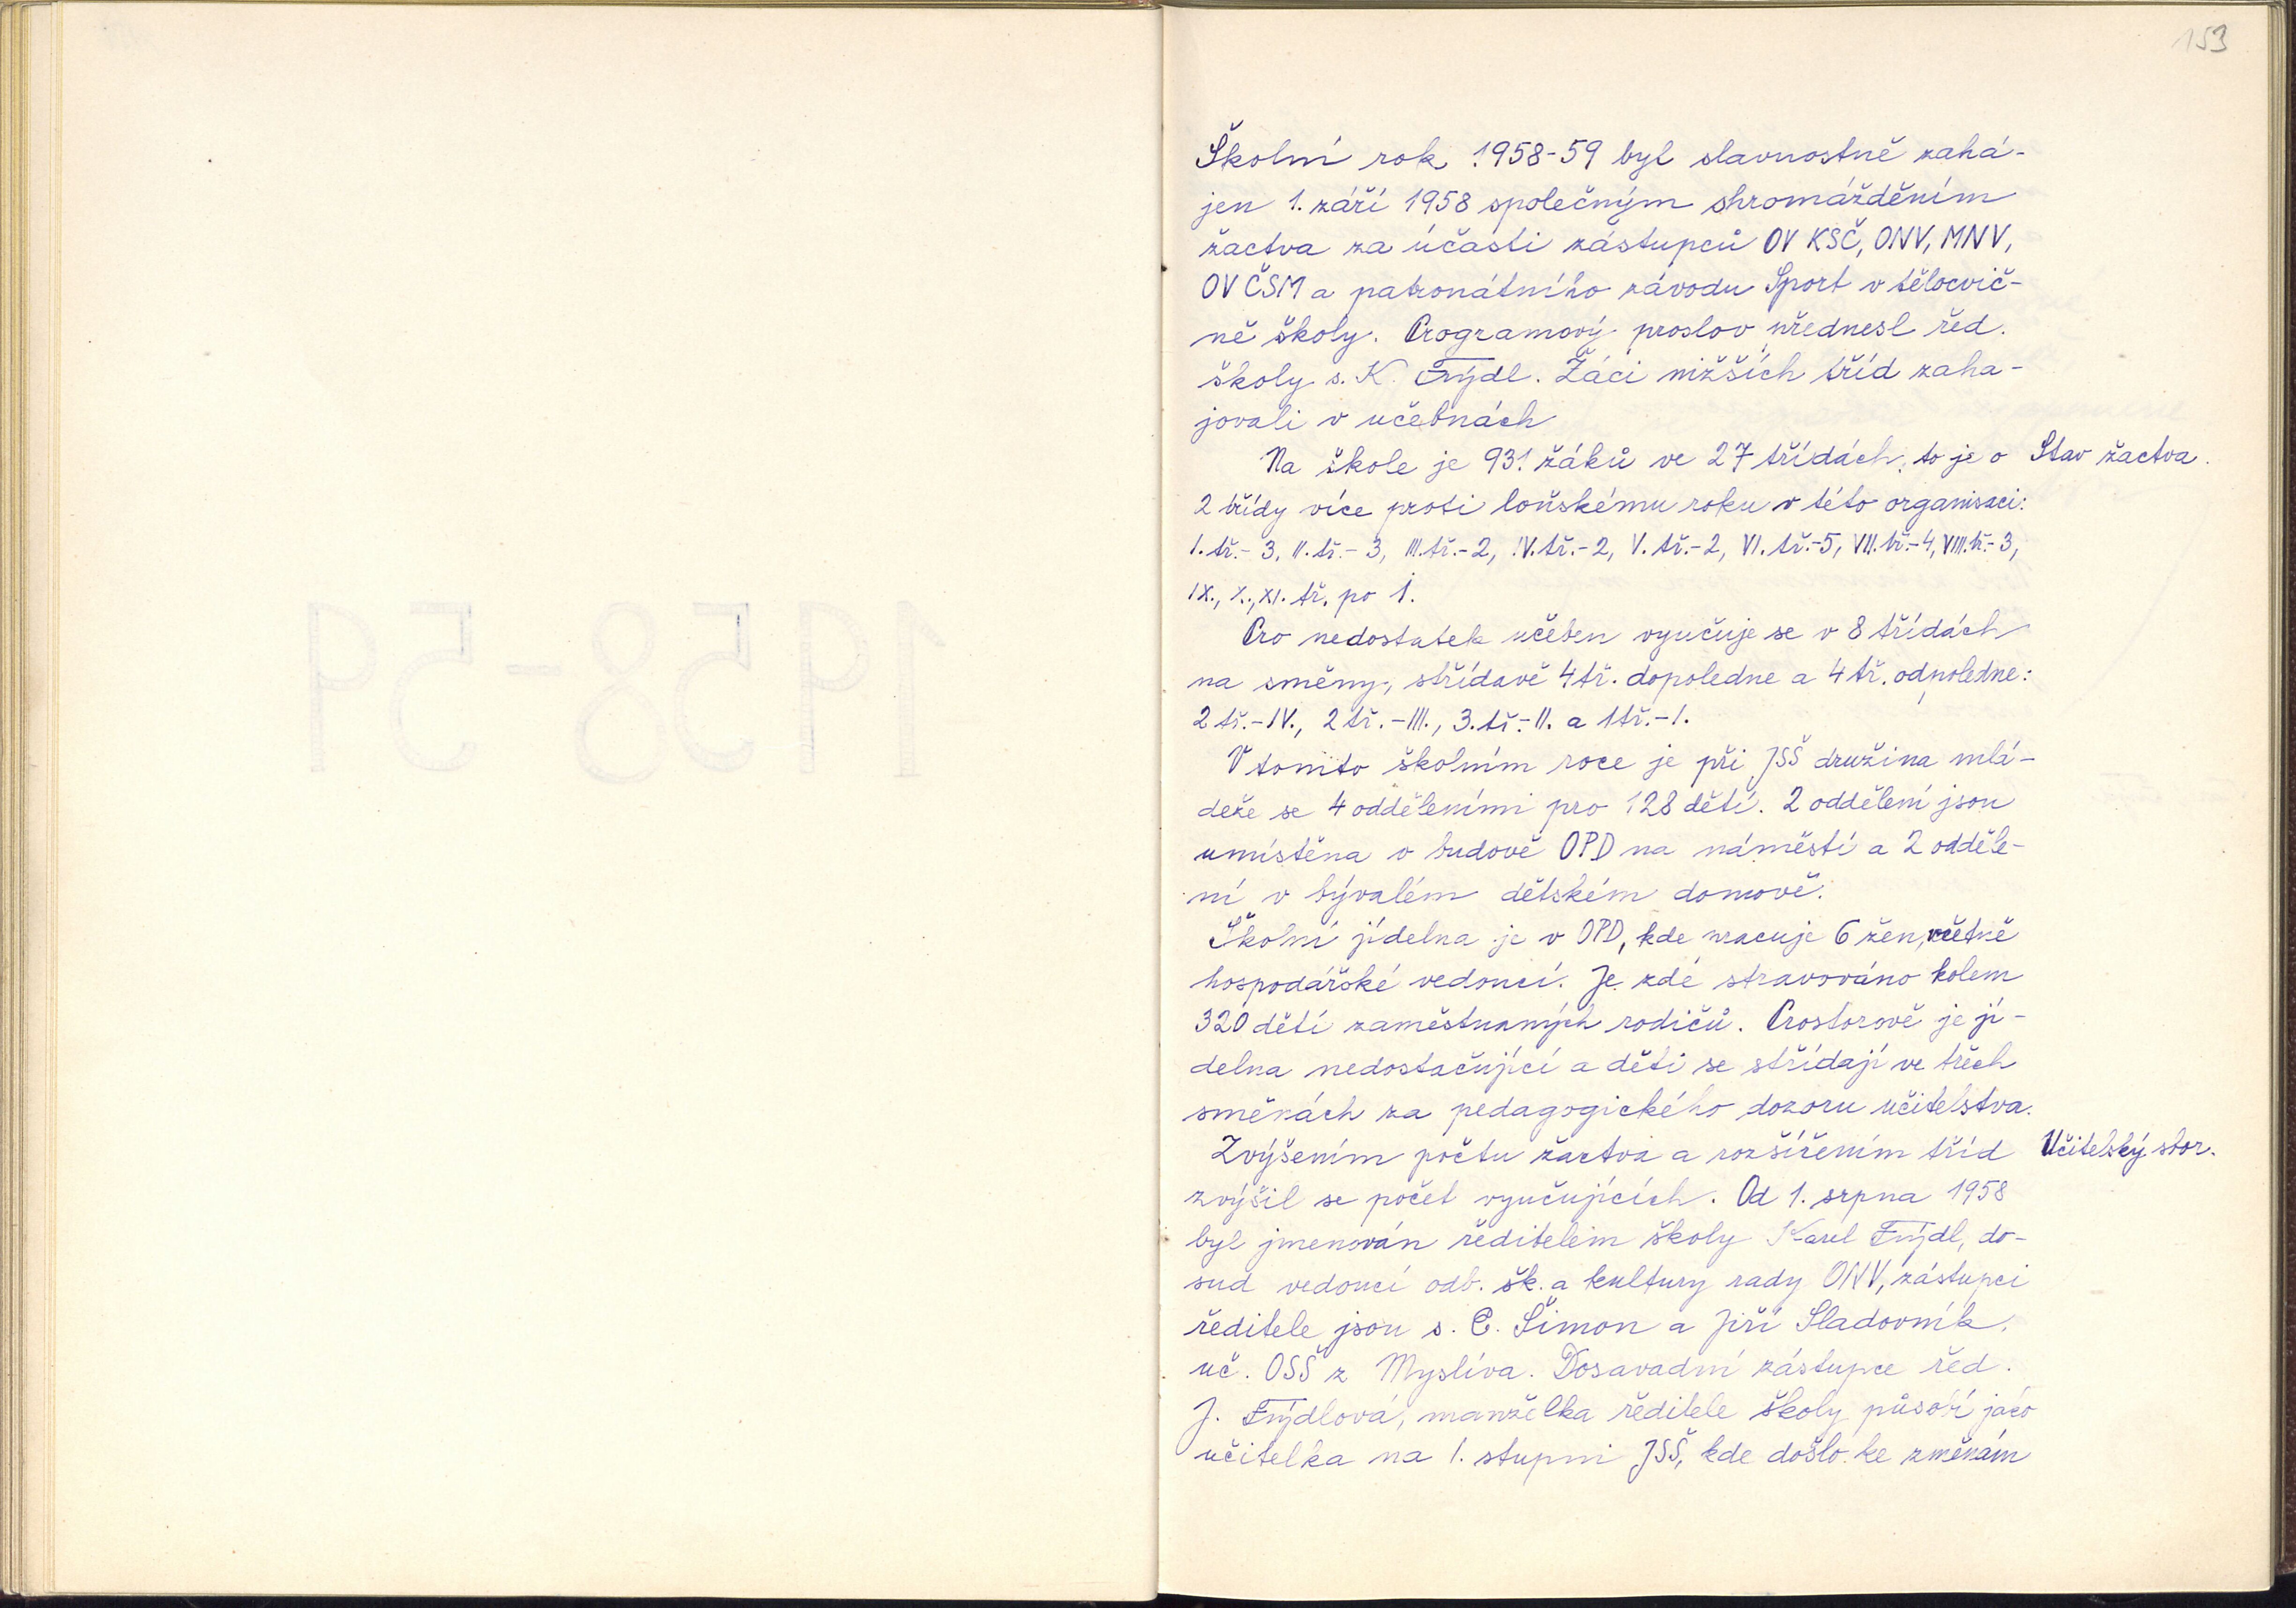 153
Školní rok 1958-59 byl slavnostně zahá-
jen 1. září 1958 společným shromážděním
žactva za účasti zástupců OV KSČ, ONV, MNV,
OV ČSM a patronátního závodu Sport v tělocvič-
ně školy. Programový proslov přednesl řed.
školy s. K. Frýdl. Žáci nižších tříd zaha-
jovali v učebnách
Na škole je 931 žáků ve 27 třídách, to je o
Stav žactva.
2 třídy více proti loňskému roku v této organisaci:
I. tř.- 3, II. tř.- 3, III. tř.-2, IV. tř.-2, V. tř.-2, VI. tř.-5, VII. tř.-4, VIII. tř.-3,
IX., X., XI. tř. po 1.
Pro nedostatek učeben vyučuje se v 8 třídách
na směny, střídavě 4 tř. dopoledne a 4 tř. odpoledne:
2 tř.-IV., 2 tř.-III., 3. tř.-II. a 1 tř.-I.
V tomto školním roce je při JSŠ družina mlá-
deže se 4 odděleními pro 128 dětí. 2 oddělení jsou
umístěna v budově OPD na náměstí a 2 odděle-
ní v bývalém dětském domově.
Školní jídelna je v OPD, kde pracuje 6 žen, včetně
hospodářské vedoucí. Je zde stravováno kolem
320 dětí zaměstnaných rodičů. Prostorově je jí-
delna nedostačující a děti se střídají ve třech
směnách za pedagogického dozoru učitelstva.
Zvýšením počtu žactva a rozšířením tříd
Učitelský sbor.
zvýšil se počet vyučujících. Od 1. srpna 1958
byl jmenován ředitelem školy Karel Frýdl, do-
sud vedoucí odb. šk. a kultury rady ONV, zástupci
ředitele jsou s. Č. Šimon a Jiří Sladovník,
uč. OSŠ z Myslíva. Dosavadní zástupce řed.
J. Frýdlová, manželka ředitele školy působí jako
učitelka na 1. stupni JSŠ, kde došlo ke změnám